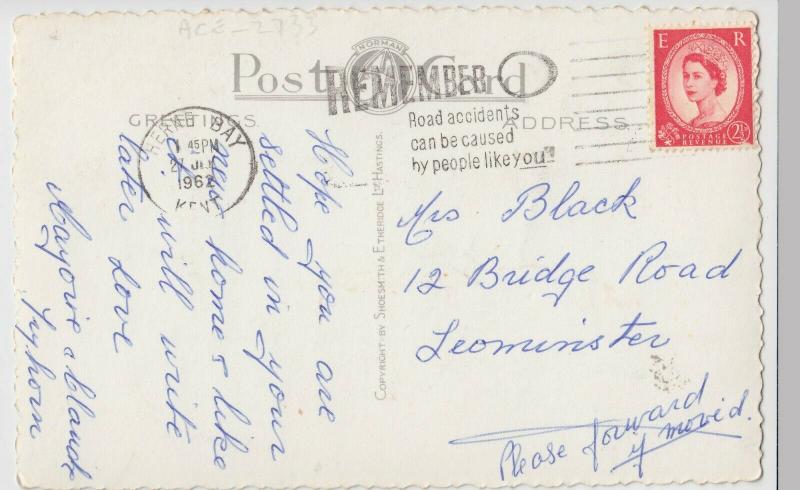 ACE-2733
NORMAN
Post Card
GREETINGS
ADDRESS
HERNE BAY
1 45PM
1962
KENT
REMEMBER
Road accidents
can be caused
by people like you
E R
POSTAGE
REVENUE
2½
Hope you are
settled in your
new home & like
it will write
later Love
Marjorie &
COPYRIGHT BY SHOESMITH & ETHERIDGE LTD HASTINGS.
Mrs Black
12 Bridge Road
Leominster
Please forward
if moved.